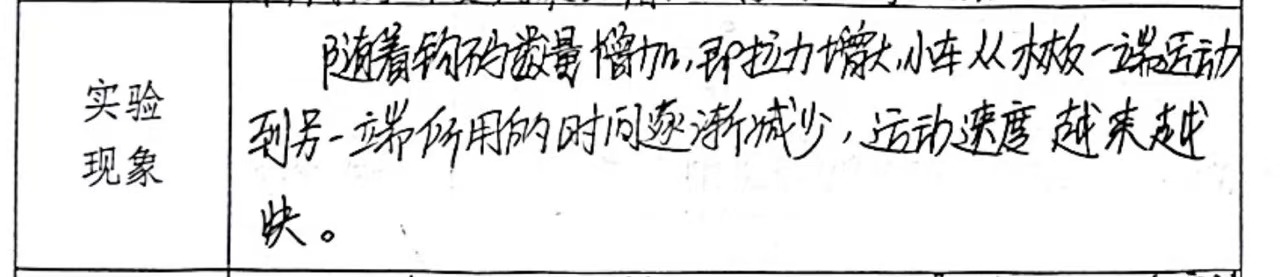 实验
现象
随着钩码数量增加,即拉力增大,小车从木板一端运动
到另一端所用的时间逐渐减少,运动速度越来越
快。